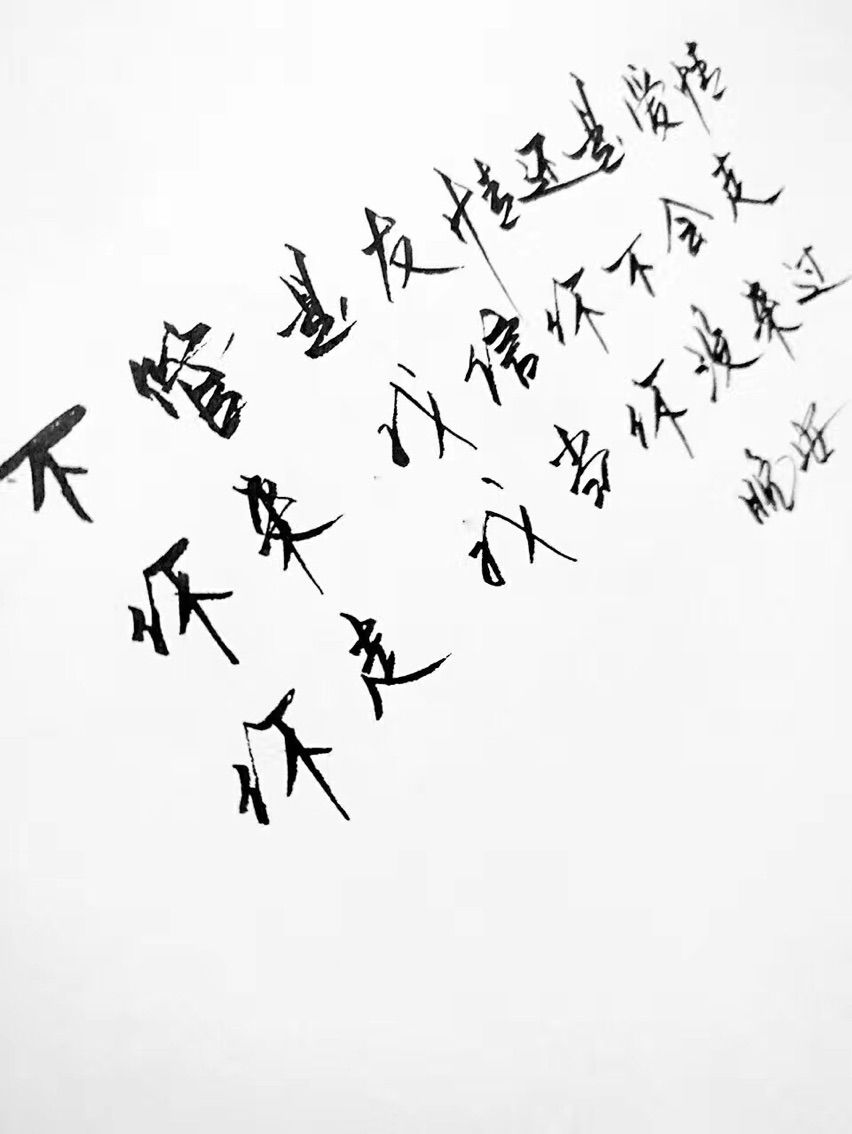 不管是友情还是爱情
你来我信你不会走
你走我当你没来过
晚安